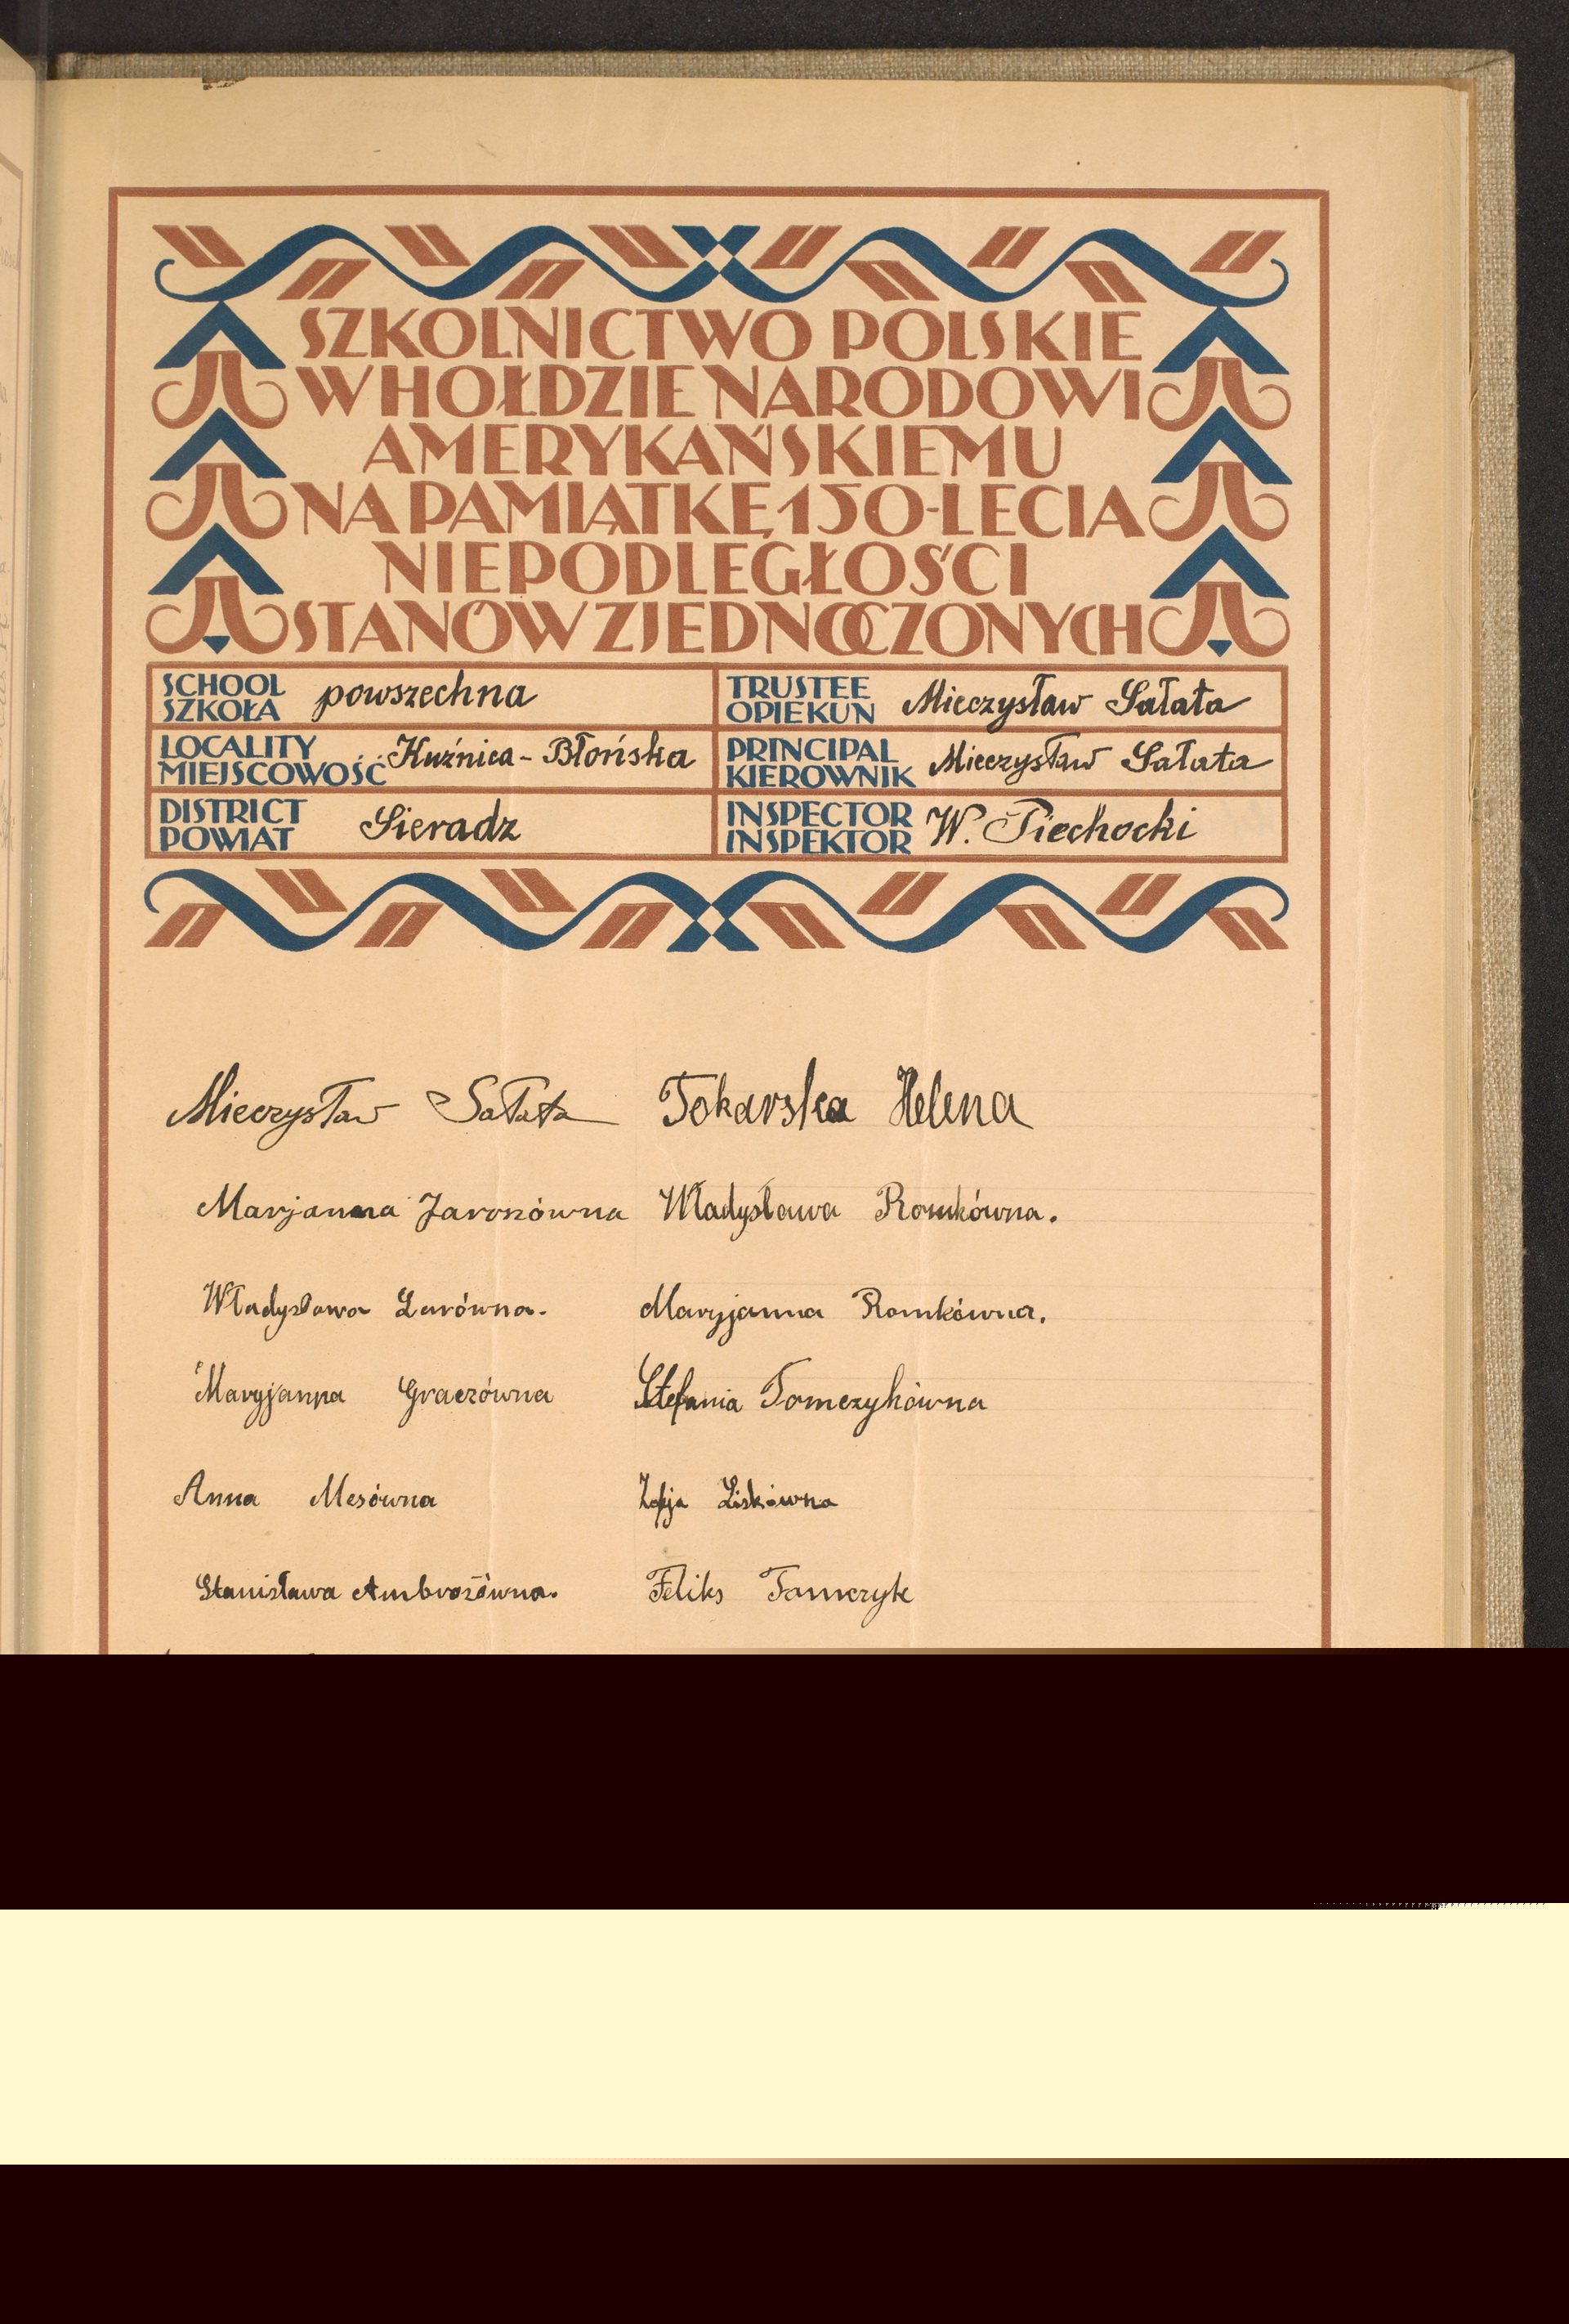 SZKOLNICTWO POLSKIE
W HOŁDZIE NARODOWI
AMERYKAŃSKIEMU
NA PAMIĄTKĘ 150-LECIA
NIEPODLEGŁOŚCI
STANÓW ZJEDNOCZONYCH
SCHOOL
SZKOŁA
powszechna
TRUSTEE
OPIEKUN
Mieczysław Sałata
LOCALITY
MIEJSCOWOŚĆ
Kuźnica-Błońska
PRINCIPAL
KIEROWNIK
Mieczysław Sałata
DISTRICT
POWIAT
Sieradz
INSPECTOR
INSPEKTOR
W. Piechocki
Mieczysław Sałata
Tokarska Helena
Marjanna Jaroszówna
Władysława Romkówna.
Władysława
Maryjanna Romkówna.
Maryjanna Graczówna
Stefania Tomczykówna
Anna Mesówna
Zofja Liskówna
Stanisława Ambrożówna.
Feliks Tomczyk